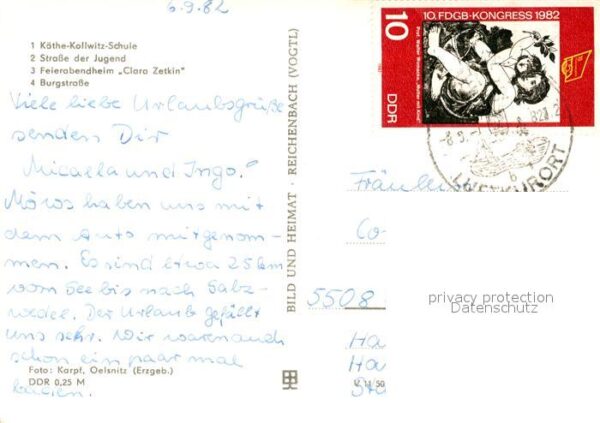 6.9.82
1 Käthe-Kollwitz-Schule
2 Straße der Jugend
3 Feierabendheim „Clara Zetkin"
4 Burgstraße
Viele liebe Urlaubsgrüße
senden Dir
Micaela und Ingo.
haben uns mit
dem Auto mitgenom-
men. Es sind etwa 25 km
vom See bis nach Salz-
wedel. Der Urlaub gefällt
uns sehr. Wir waren auch
schon ein paar mal
baden.
Foto: Karpf, Oelsnitz (Erzgeb.)
DDR 0,25 M
BILD UND HEIMAT · REICHENBACH (VOGTL)
V 11 50
10
10. FDGB-KONGRESS 1982
DDR
LUFTKURORT
Fräulein
Co
5508
Ha
Ha
Str
privacy protection
Datenschutz